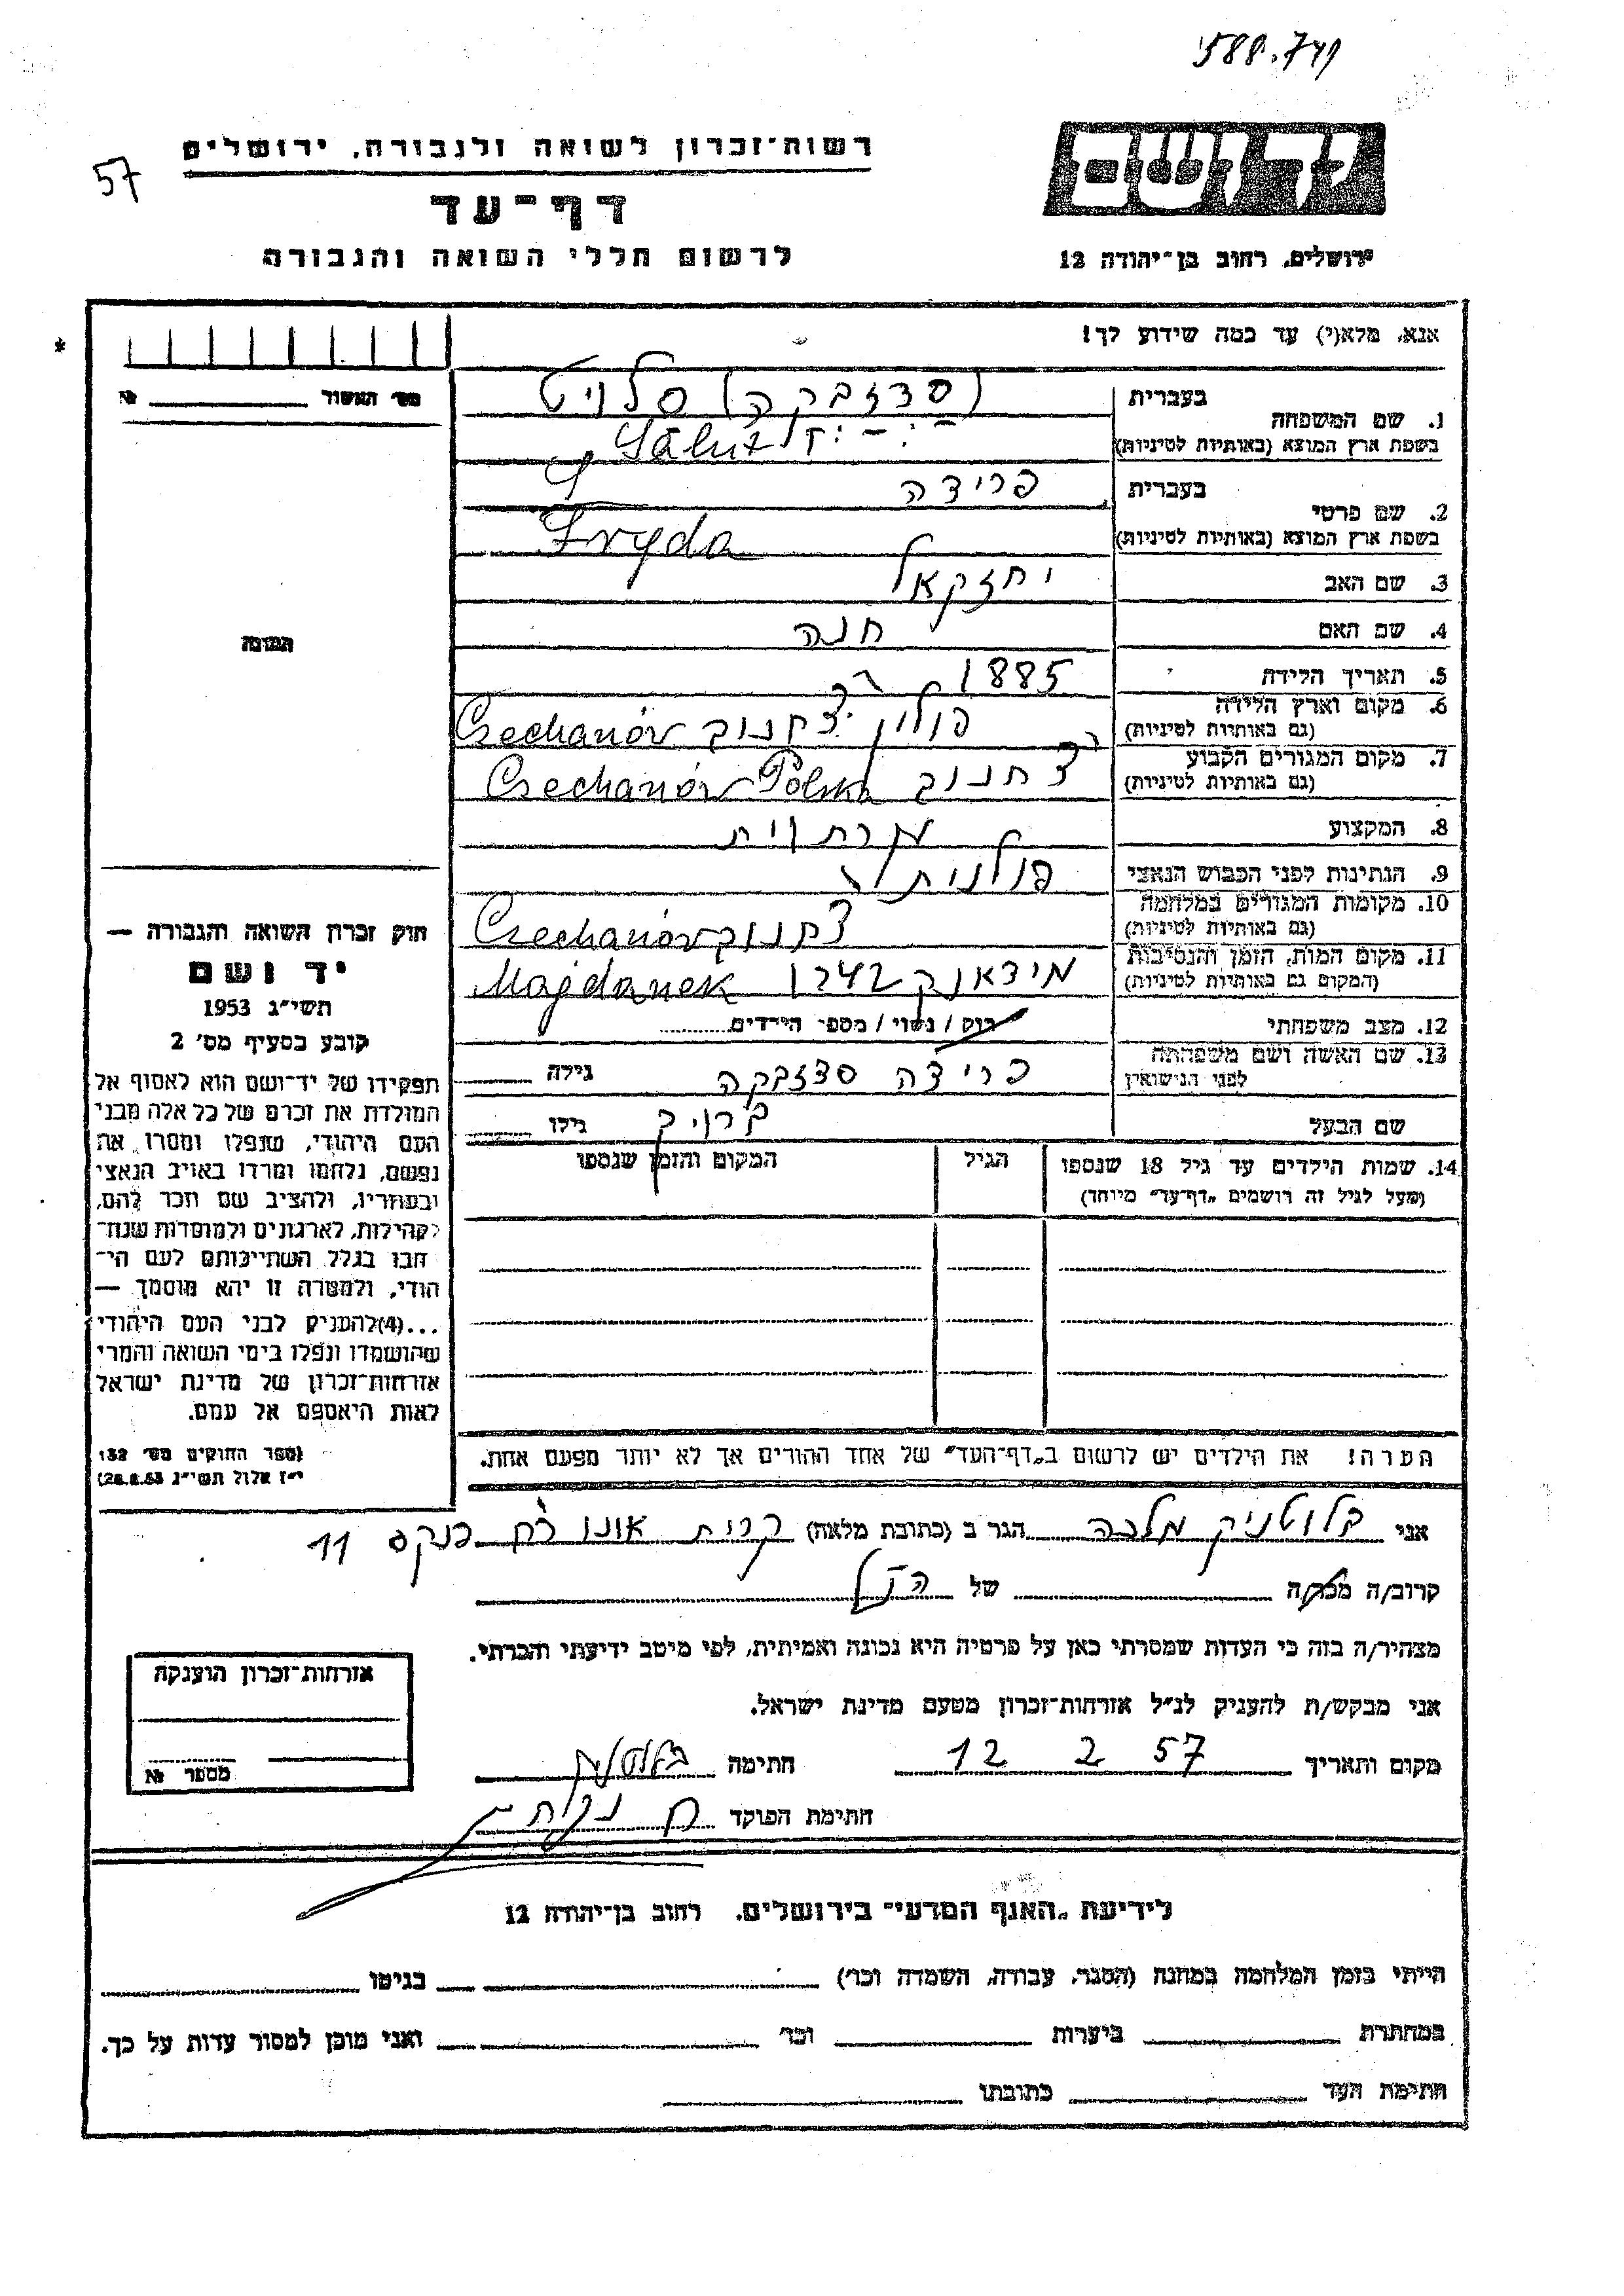 588.741
רשות־זכרון לשואה ולגבורה, ירושלים
57
דף־עד
לרשום חללי השואה והגבורה
יד ושם
ירושלים, רחוב בן־יהודה 12
אנא, מלא(י) עד כמה שידוע לך!
*
מס' האשור № 
התמונה
1. שם המשפחה בעברית (סדזבקה) סלויט
בשפת ארץ המוצא (באותיות לטיניות)
2. שם פרטי בעברית פרידה
בשפת ארץ המוצא (באותיות לטיניות) Fryda
3. שם האב יחזקאל
4. שם האם חנה
5. תאריך הלידה 1885
6. מקום וארץ הלידה (גם באותיות לטיניות) פולין צחנוב Czechanów
7. מקום המגורים הקבוע (גם באותיות לטיניות) צחנוב Czechanów Polska
8. המקצוע
9. הנתינות לפני הכבוש הנאצי פולנית
10. מקומות המגורים במלחמה (גם באותיות לטיניות) צחנוב Czechanów
11. מקום המות, הזמן והנסיבות (המקום גם באותיות לטיניות) מידאנק 1942 Majdanek
12. מצב משפחתי רוק / נשוי / מספר הילדים
13. שם האשה ושם משפחתה לפני הנישואין פרידה סדזבקה גילה
שם הבעל ברוך גילו
14. שמות הילדים עד גיל 18 שנספו הגיל המקום והזמן שנספו
(מעל לגיל זה רושמים „דף־עד" מיוחד)
חוק זכרון השואה והגבורה —
יד ושם
תשי"ג 1953
קובע בסעיף מס' 2
תפקידו של יד־ושם הוא לאסוף אל
המולדת את זכרם של כל אלה מבני
העם היהודי, שנפלו ומסרו את
נפשם, נלחמו ומרדו באויב הנאצי
ובעוזריו, ולהציב שם וזכר להם,
לקהילות, לארגונים ולמוסדות שנח־
רבו בגלל השתייכותם לעם הי־
הודי, ולמטרה זו יהא מוסמך —
...(4) להעניק לבני העם היהודי
שהושמדו ונפלו בימי השואה והמרי
אזרחות־זכרון של מדינת ישראל
לאות היאספם אל עמם.
(ספר החוקים מס' 132
י"ז אלול תשי"ג 28.8.53)
הערה! את הילדים יש לרשום ב„דף־העד" של אחד ההורים אך לא יותר מפעם אחת.
אני בלוטניק מלכה הגר ב (כתובת מלאה) קרית אונו רח פנקס 11
קרוב/ה מכר/ה של הנ"ל
מצהיר/ה בזה כי העדות שמסרתי כאן על פרטיה היא נכונה ואמיתית, לפי מיטב ידיעתי והכרתי.
אני מבקש/ת להעניק לנ"ל אזרחות־זכרון מטעם מדינת ישראל.
מקום ותאריך 57 2 12 חתימה
חתימת הפוקד
אזרחות־זכרון הוענקה
מספר №
לידיעת „האגף המדעי" בירושלים, רחוב בן־יהודה 12
הייתי בזמן המלחמה במחנה (הסגר, עבודה, השמדה וכו') בגיטו
במחתרת ביערות וכו' ואני מוכן למסור עדות על כך.
חתימת העד כתובתו